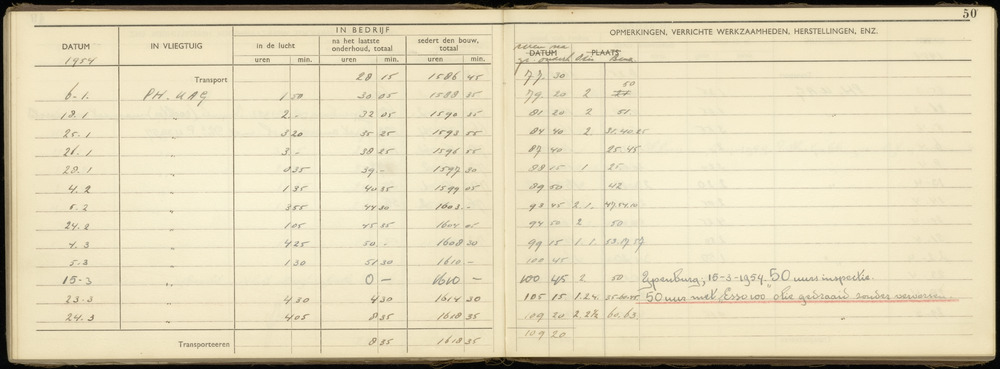 50
IN BEDRIJF
OPMERKINGEN, VERRICHTE WERKZAAMHEDEN, HERSTELLINGEN, ENZ.
DATUM IN VLIEGTUIG in de lucht na het laatste onderhoud, totaal sedert den bouw, totaal DATUM PLAATS
1954 uren min. uren min. uren min.
Transport 28 15 1586 45 77 30
6-1. PH-UAG 1 50 30 05 1588 35 79 20 2 50
18.1 " 2 - 32 05 1590 35 81 20 2 51
25.1 " 3 20 35 25 1593 55 84 40 2 31.40.25
26.1 " 3 - 38 25 1596 55 87 40 25.45
28.1 " 0 35 39 - 1597 30 88 15 1 25
4.2 " 1 35 40 35 1599 05 89 50 42
5.2 " 3 55 44 30 1603 - 93 45 2 1. 47.54.10
24.2 " 1 05 45 35 1604 05 94 50 2 50
4.3 " 4 25 50 - 1608 30 99 15 1.1. 53.17.57
5.3 " 1 30 51 30 1610 - 100 45
15-3 0 - 1610 - 100 45 2 50 Ypenburg, 15-3-1954. 50 uurs inspectie.
23-3 " 4 30 4 30 1614 30 105 15 1.24. 50 uur met "Esso 100" olie gedraaid zonder verversen.
24.3 " 4 05 8 35 1618 35 109 20 60.63. "
109 20
Transporteeren 8 35 1618 35